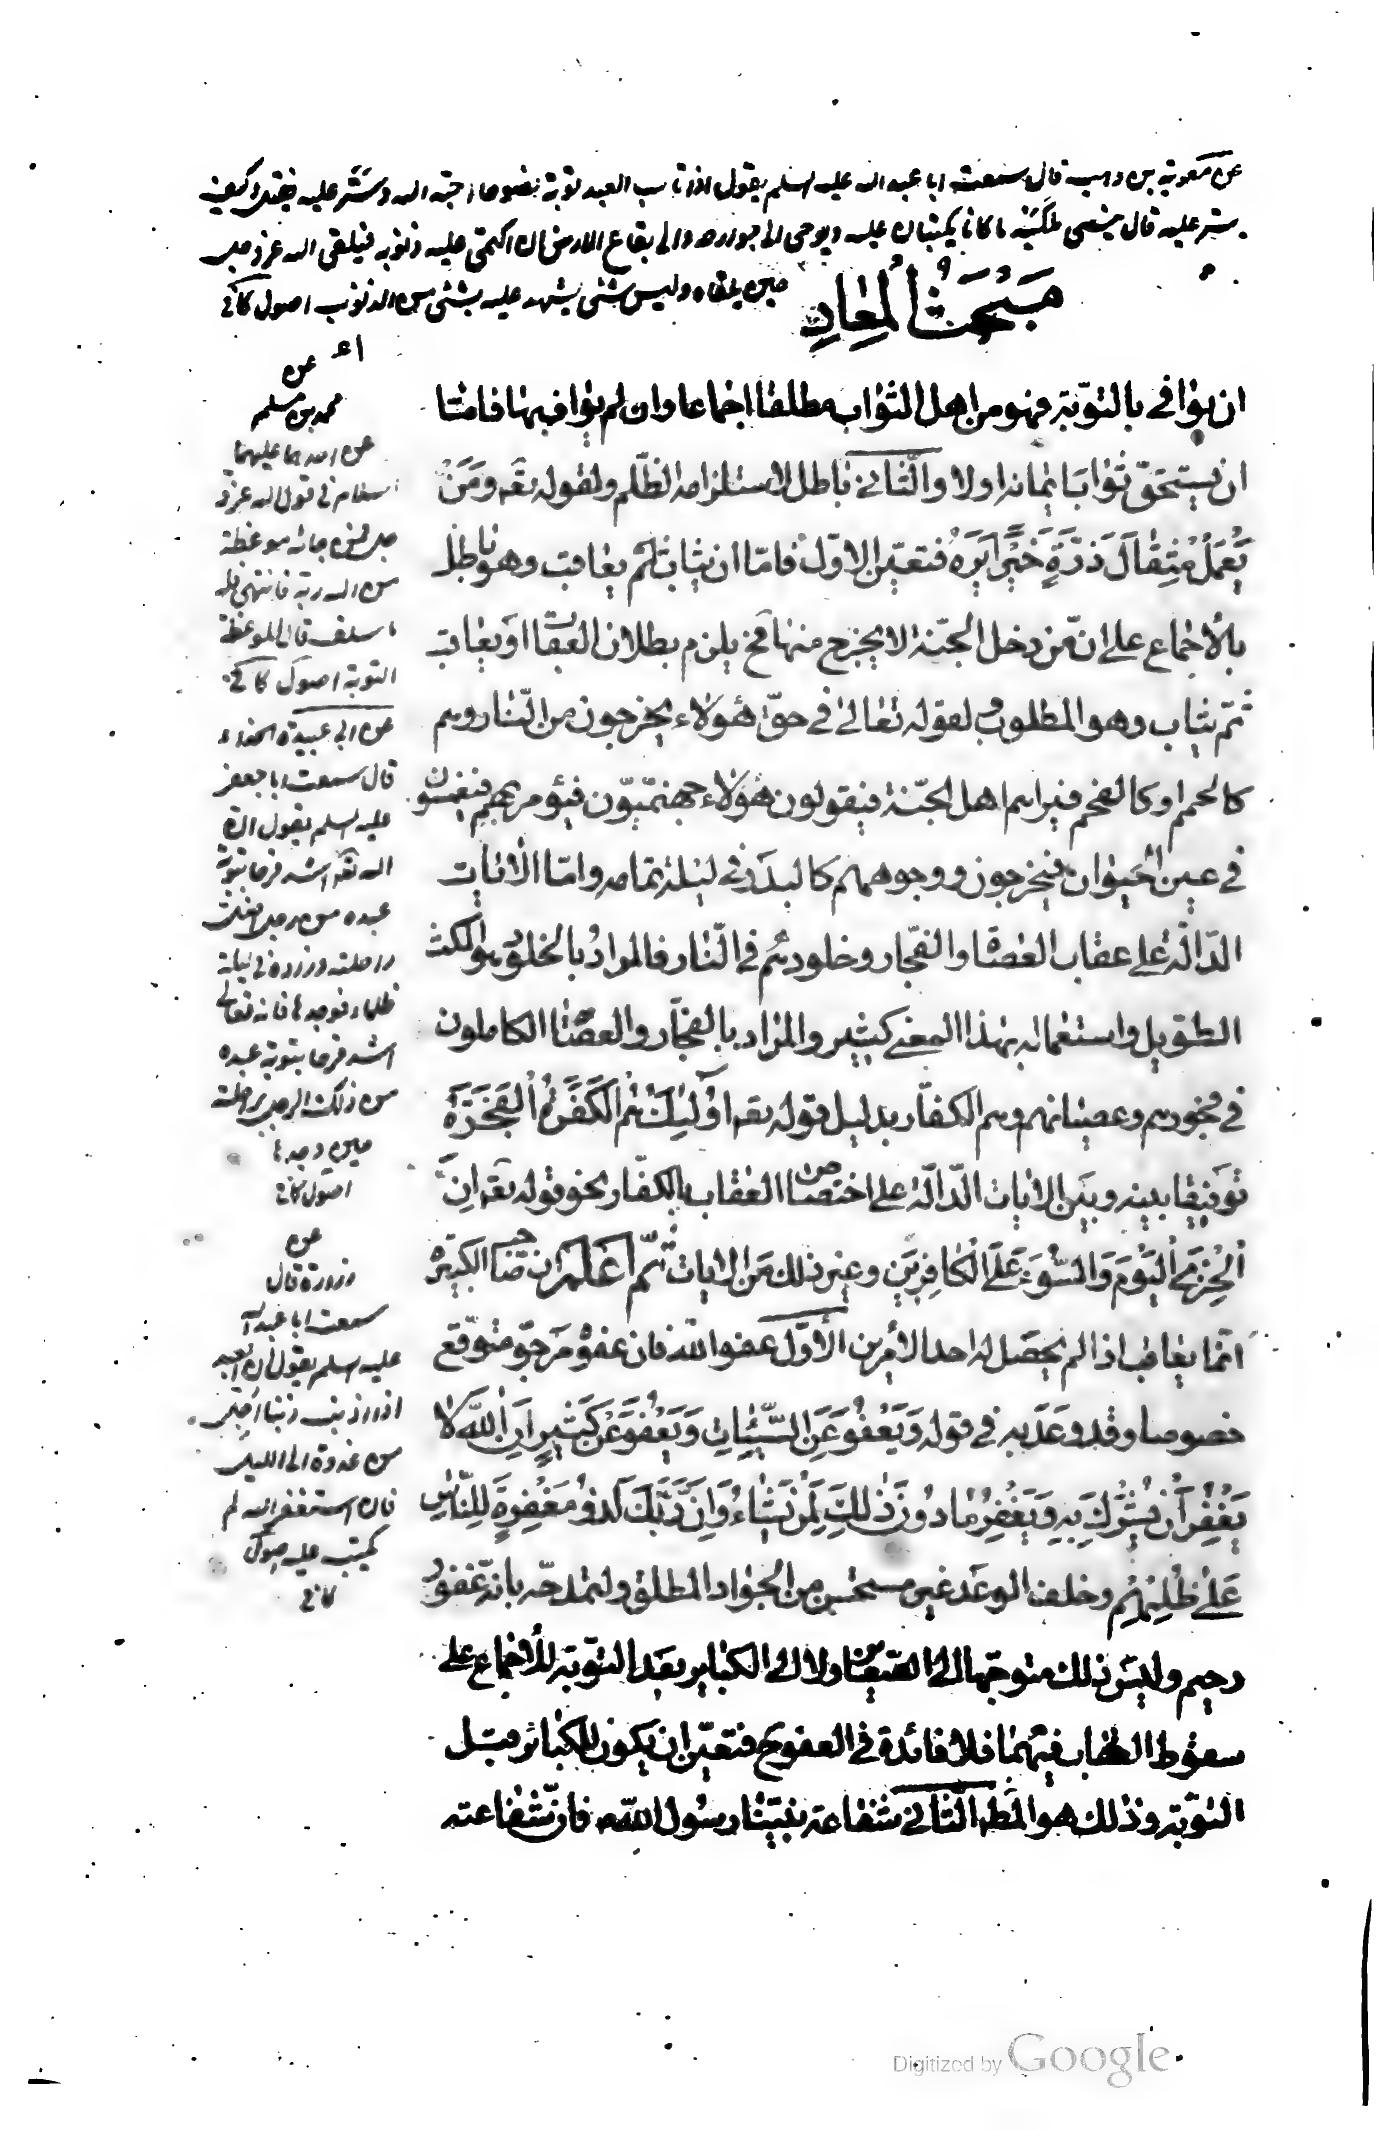 عن معوية بن وهب قال سمعت ابا عبد الله عليه السلم يقول اذا تاب العبد توبة نصوحا احبه الله وستر عليه فقلت وكيف
يستر عليه قال ينسى ملكيه ما كانا يكتبان عليه ويوحى الى جوارحه والى بقاع الارض ان اكتمى عليه ذنوبه فيلقى الله عز وجل
حين يلقاه وليس شئ يشهد عليه بشئ من الذنوب اصول كافى
مبحث المعاد
ان يوافي بالتوبة فهو من اهل الثواب مطلقا اجماعا وان لم يواف بها فامّا
ان يستحقّ ثوابا بايمانه اولا والثّاني باطل لاستلزامه الظّلم ولقوله تعه ومَنْ
يَعْمَلْ مِثْقالَ ذَرَّةٍ خَيْراً يَرَهُ فتعيّن الاوّل فامّا ان يثاب ثم يعاقب وهو باطل
بالأجماع على انّ من دخل الجنّة لا يخرج منها فح يلزم بطلان العقاب او يعاقب
ثمّ يثاب وهو المطلوب ولقوله تعالى في حقّ هؤلاء يخرجون من النّار وهم
كالحمم او كالفحم فيراهم اهل الجنّة فيقولون هؤلاء جهنّميّون فيؤمر بهم فيغمسون
في عين الحيوان فيخرجون ووجوههم كالبدر في ليلة تمامه وامّا الآيات
الدّالّة على عقاب العصاة والفجّار وخلودهم في النّار فالمراد بالخلود هو المكث
الطّويل واستعماله بهذا المعنى كثير والمراد بالفجّار والعصاة الكاملون
في فجورهم وعصيانهم وهم الكفّار بدليل قوله تعه اُولئِكَ هُمُ الْكَفَرَةُ الْفَجَرَةُ
توفيقا بينه وبين الآيات الدّالّة على اختصاص العقاب بالكفّار نحو قوله تعه انّ
الْخِزْيَ الْيَوْمَ وَالسُّوءَ عَلَى الْكافِرينَ وغير ذلك من الآيات ثمّ اعلم ان صاحب الكبيرة
انّما يعاقب اذا لم يحصل له احد الأمرين الأوّل عفو اللّه فان عفوه مرجوّ متوقّع
خصوصا وقد وعد به في قوله وَيَعْفُو عَنِ السَّيِّئاتِ وَيَعْفُو عَنْ كَثيرٍ اِنَّ اللّهَ لا
يَغْفِرُ اَنْ يُشْرَكَ بِهِ وَيَغْفِرُ ما دُونَ ذلِكَ لِمَنْ يَشاءُ وَاِنَّ رَبَّكَ لَذُو مَغْفِرَةٍ لِلنّاسِ
عَلى ظُلْمِهِمْ وخلف الوعد غير مستحسن من الجواد المطلق ولتمدحه بانّه غفور
رحيم وليس ذلك متوجّها الى الصغائر ولا الى الكبائر بعد التّوبة للأجماع على
سقوط العقاب فيهما فلا فائدة في العفو ح فتعيّن ان يكون للكبائر قبل
التّوبة وذلك هو المط الثّاني شفاعة نبيّنا رسول اللّه فانّ شفاعته
عن
محمد بن مسلم
عن احدهما عليهما
السلام فى قول الله عز و
جل فمن جائه موعظة
من الله ربه فانتهى فله
ما سلف قال الموعظة
التوبة اصول كافى
عن ابى عبيدة الحذاء
قال سمعت ابا جعفر
عليه السلم يقول ان
الله تعه اشد فرحا بتوبة
عبده من رجل اضل
راحلته وزاده فى ليلة
ظلماء فوجدها فالله تعالى
اشد فرحا بتوبة عبده
من ذلك الرجل براحلته
حين وجدها
اصول كافى
عن
زرارة قال
سمعت ابا عبد الله
عليه السلم يقول ان العبد
اذا اذنب ذنبا اجل
من غدوة الى الليل
فان استغفر الله لم
يكتب عليه اصول
كافى
Digitized by Google